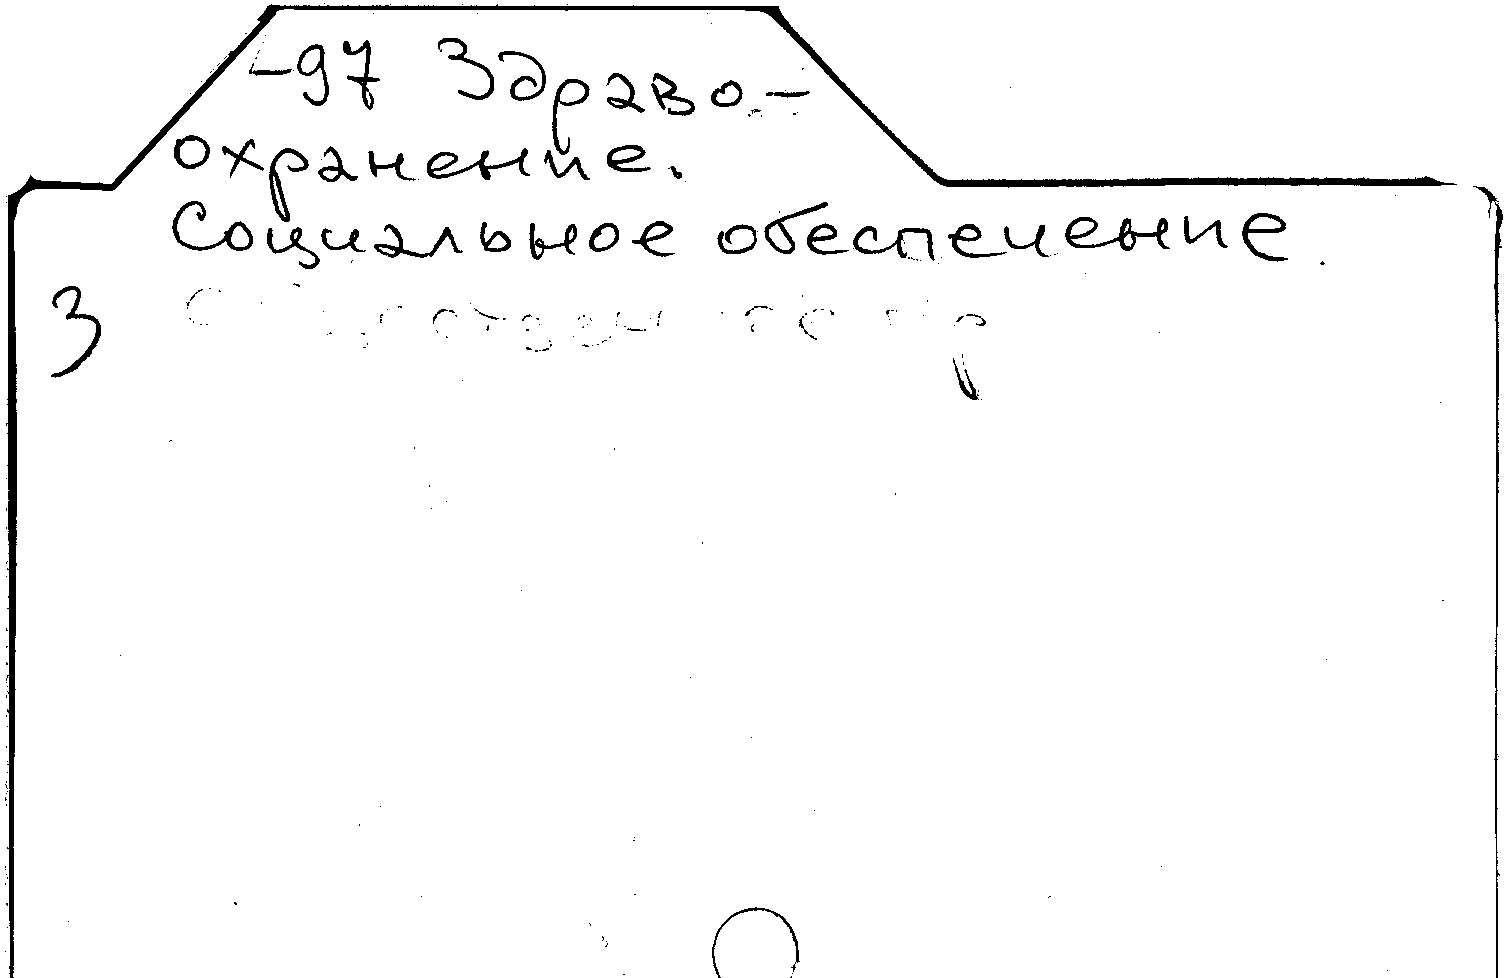 -97 Здраво-
охранение.
Социальное обеспечение.
3